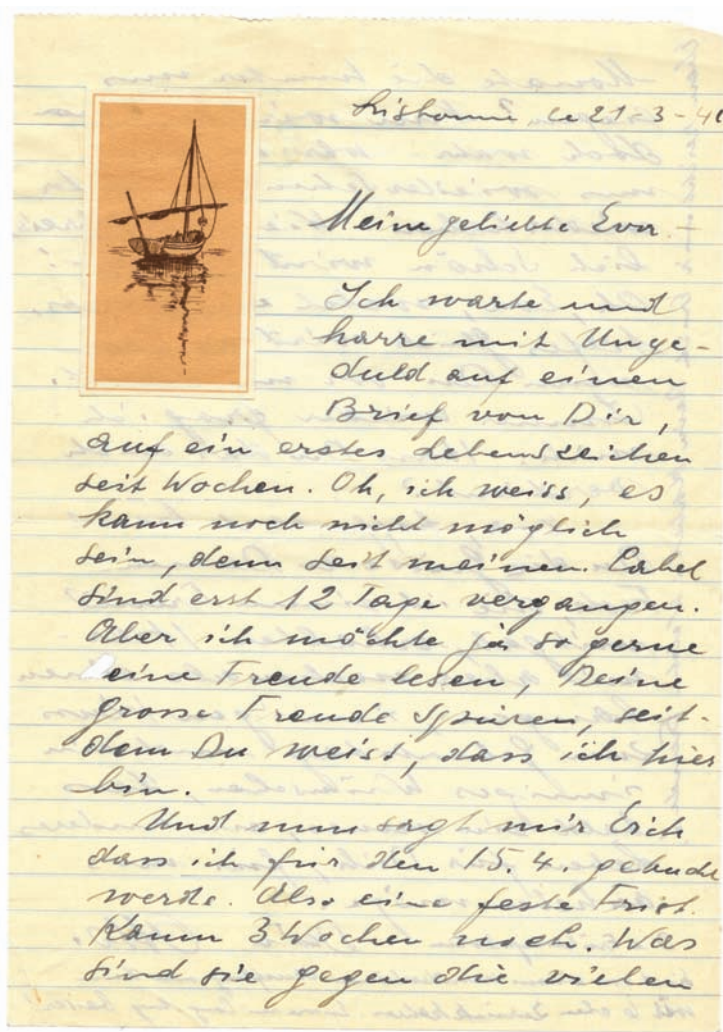 Lisbonne, le 21-3-41
Meine geliebte Eva.
Ich warte und
harre mit Unge-
duld auf einen
Brief von Dir,
auf ein erstes Lebenszeichen
seit Wochen. Oh, ich weiss, es
kann noch nicht möglich
sein, denn seit meinen Cabel
sind erst 12 Tage vergangen.
Aber ich möchte ja so gerne
eine Freude lesen, Deine
grosse Freude spüren, seit-
dem Du weist, dass ich hier
bin.
Und nun sagt mir Erich
dass ich für den 15. 4. gebucht
werde. Also eine feste Frist.
Kaum 3 Wochen noch. Was
sind sie gegen die vielen